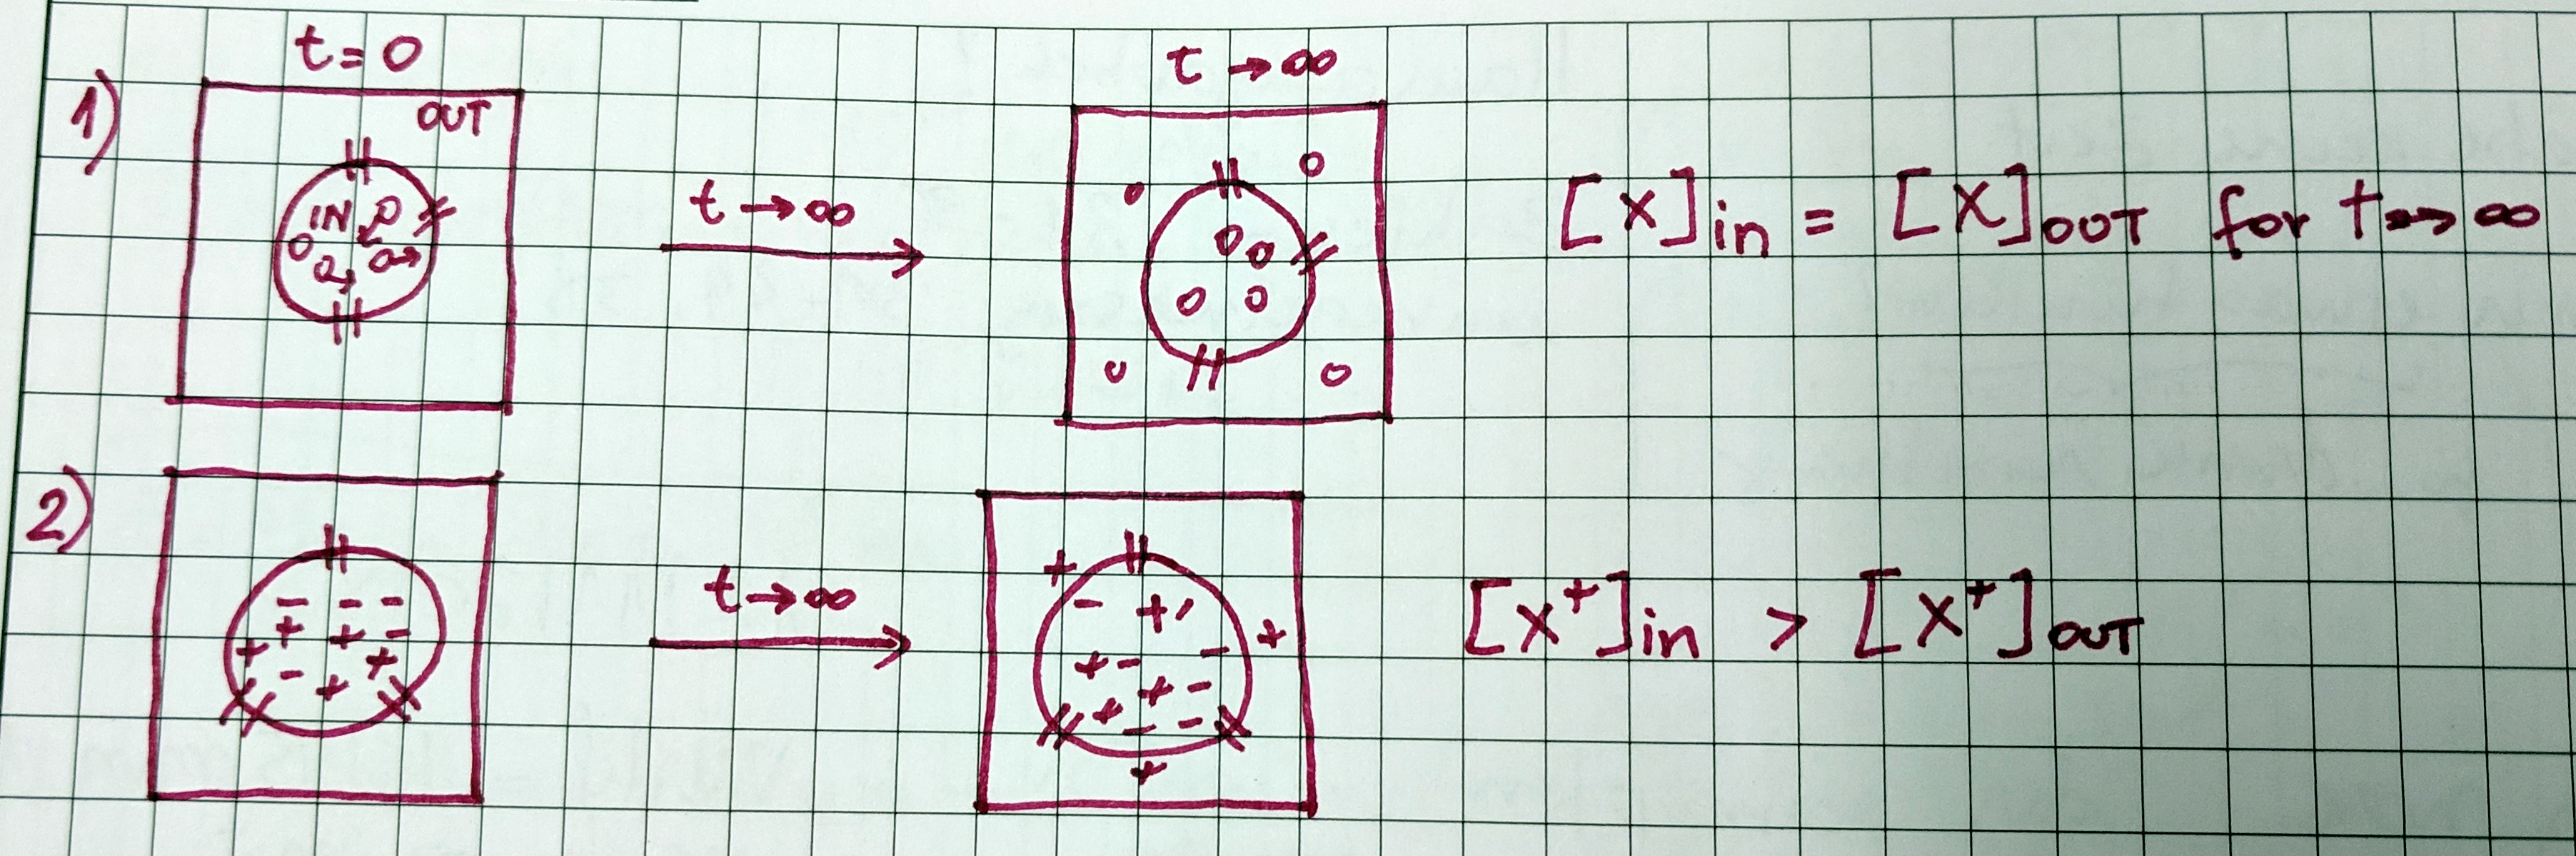 t = 0
τ → ∞
1)
OUT
IN
t → ∞
[X]in = [X]OUT for t → ∞
2)
t → ∞
[X⁺]in > [X⁺]OUT